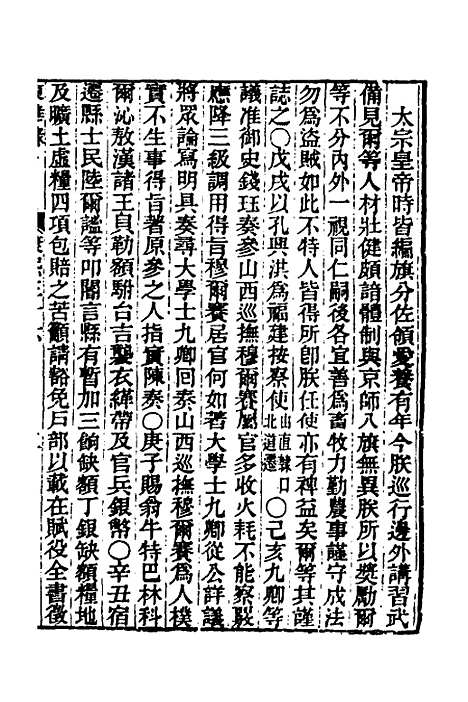 太宗皇帝時皆編旗分佐領愛養有年今朕巡行邊外講習武
備見爾等人材壯健頗諳體制與京師八旗無異朕所以獎勵爾
等不分內外一視同仁嗣後各宜善爲畜牧力勤農事謹守成法
勿爲盜賊如此不特人皆得所卽朕任使亦有裨益矣爾等其謹
誌之〇戊戌以孔興洪爲福建按察使由直隸口北道遷〇己亥九卿等
議准御史錢珏奏參山西巡撫穆爾賽屬官多收火耗不能察覈
應降三級調用得旨穆爾賽居官何如著大學士九卿從公詳議
將眾論寫明具奏尋大學士九卿回奏山西巡撫穆爾賽爲人樸
實不生事得旨著原參之人指實陳奏〇庚子賜翁牛特巴林科
爾沁敖漢諸王貝勒額駙台吉襲衣緯帶及官兵銀幣〇辛丑宿
遷縣士民陸爾謐等叩閽言縣有暫加三餉缺額丁銀缺額糧地
及曠土虛糧四項包賠之苦籲請豁免戶部以載在賦役全書徵